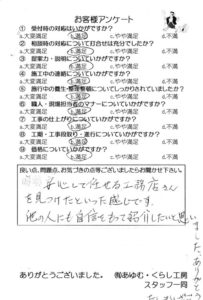 お客様アンケート
① 受付時の対応はいかがですか?
a.大変満足 b.満足 c.やや満足 d.不満
② 相談時の対応について打合せは充分でしたか?
a.大変満足 b.満足 c.やや満足 d.不満
③ 提案力・説明についていかがですか?
a.大変満足 b.満足 c.やや満足 d.不満
④ 施工中の連絡についていかがですか?
a.大変満足 b.満足 c.やや満足 d.不満
⑤ 施行中の養生・整理整頓についてしっかりされていましたか?
a.大変満足 b.満足 c.やや満足 d.不満
⑥ 職人・現場担当者のマナーについていかがですか?
a.大変満足 b.満足 c.やや満足 d.不満
⑦ 工事の仕上がりについていかがですか?
a.大変満足 b.満足 c.やや満足 d.不満
⑧ 工期・工事段取り・進行についていかがですか?
a.大変満足 b.満足 c.やや満足 d.不満
⑨ 価格についていかがですか?
a.大変満足 b.満足 c.やや満足 d.不満
良い点、問題点、お気づきの点等ございましたらお聞かせ下さい
安心して任せる工務店さん
を見つけたといった感じです。
他の人にも自信をもって紹介したいと思
いました。ありがと
ありがとうございました。 ㈲あゆむ・くらし工房
スタッフ一同